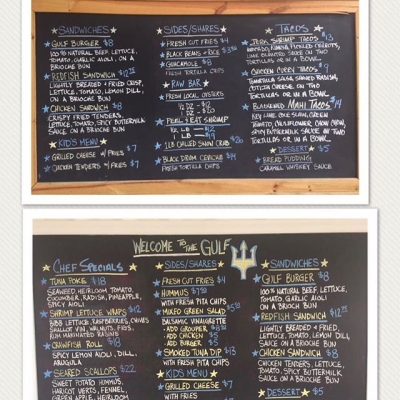 SANDWICHES
GULF BURGER $8
100% NATURAL BEEF, LETTUCE,
TOMATO, GARLIC AIOLI, ON A
BRIOCHE BUN
REDFISH SANDWICH $12.50
LIGHTLY BREADED + FRIED CRISP,
LETTUCE, TOMATO, LEMON DILL,
ON A BRIOCHE BUN
CHICKEN SANDWICH $8
CRISPY FRIED TENDERS,
LETTUCE, TOMATO, SPICY BUTTERMILK
SAUCE ON A BRIOCHE BUN
KID'S MENU
GRILLED CHEESE W/FRIES $7
CHICKEN TENDERS W/ FRIES $7
SIDES/SHARES
FRESH CUT FRIES $4
BLACK BEANS + RICE
GUACAMOLE $8
FRESH TORTILLA CHIPS
RAW BAR
FRESH LOCAL OYSTERS
1/2 DZ
DZ
PEEL + EAT SHRIMP
1/2 LB $12
1 LB
1 LB CHILLED SNOW CRAB
BLACK DRUM CEVICHE $14
FRESH TORTILLA CHIPS
TACOS
JERK SHRIMP TACOS $13
TORTILLAS OR IN A BOWL
CHICKEN CURRY TACOS $9
TORTILLAS OR IN A BOWL
BLACKENED MAHI TACOS $14
KEY LIME COLE SLAW, GREEN
TOMATO, CAULIFLOWER CHOW CHOW,
SPICY BUTTERMILK SAUCE ON TWO
TORTILLAS OR IN A BOWL
DESSERT $5
BREAD PUDDING
CARAMEL WHISKEY SAUCE
WELCOME TO THE GULF
CHEF SPECIALS
TUNA POKE $18
SEAWEED, HEIRLOOM TOMATO,
CUCUMBER, RADISH, PINEAPPLE,
SPICY AIOLI
SHRIMP LETTUCE WRAPS $12
BIBB LETTUCE, RASPBERRIES, CHIVES
SHALLOT VIN, WALNUTS, FIGS,
RUM MARINATED RAISINS
CRAWFISH ROLL $18
SPICY LEMON AIOLI, DILL,
ARUGULA
SEARED SCALLOPS $22
SWEET POTATO HUMMUS,
HARICOT VERTS, FENNEL,
GREEN APPLE, HEIRLOOM
SIDES/SHARES
FRESH CUT FRIES $4
HUMMUS $7.50
WITH FRESH PITA CHIPS
MICRO GREEN SALAD
BALSAMIC VINAIGRETTE
ADD GROUPER
ADD CHICKEN $5
ADD BURGER $5
SMOKED TUNA DIP $13
WITH FRESH PITA CHIPS
KIDS MENU
GRILLED CHEESE $7
WITH FRIES
SANDWICHES
GULF BURGER $8
100% NATURAL BEEF, LETTUCE,
TOMATO, GARLIC AIOLI
ON A BRIOCHE BUN
REDFISH SANDWICH $12.50
LIGHTLY BREADED + FRIED,
LETTUCE, TOMATO, LEMON DILL
SAUCE ON A BRIOCHE BUN
CHICKEN SANDWICH $8
CHICKEN TENDERS, LETTUCE,
TOMATO, SPICY BUTTERMILK
SAUCE ON A BRIOCHE BUN
DESSERT $5